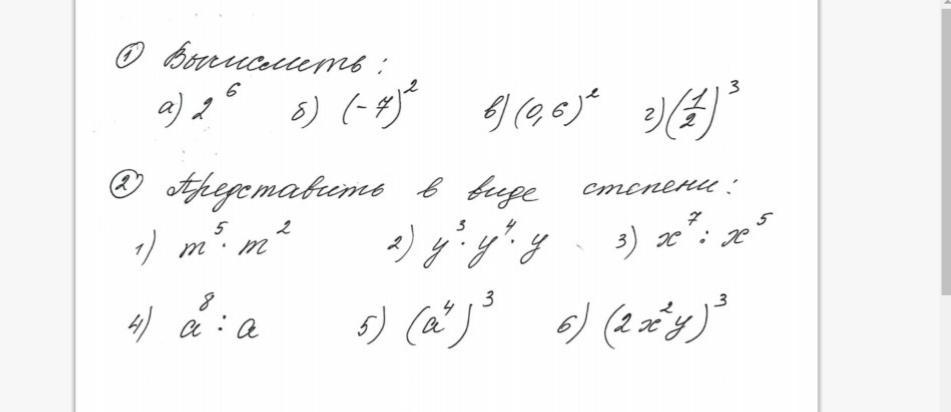 ① Вычислить:
а) 2⁶ б) (-7)² в) (0,6)² г) (1/2)³
② Представить в виде степени:
1) m⁵ · m² 2) y³ · y⁴ · y 3) x⁷ : x⁵
4) a⁸ : a 5) (a⁴)³ 6) (2x²y)³